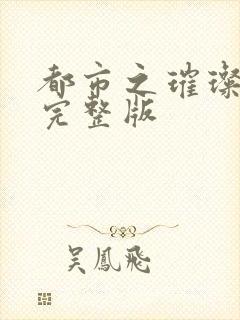 都市之璀璨
完整版
吴鳳飛